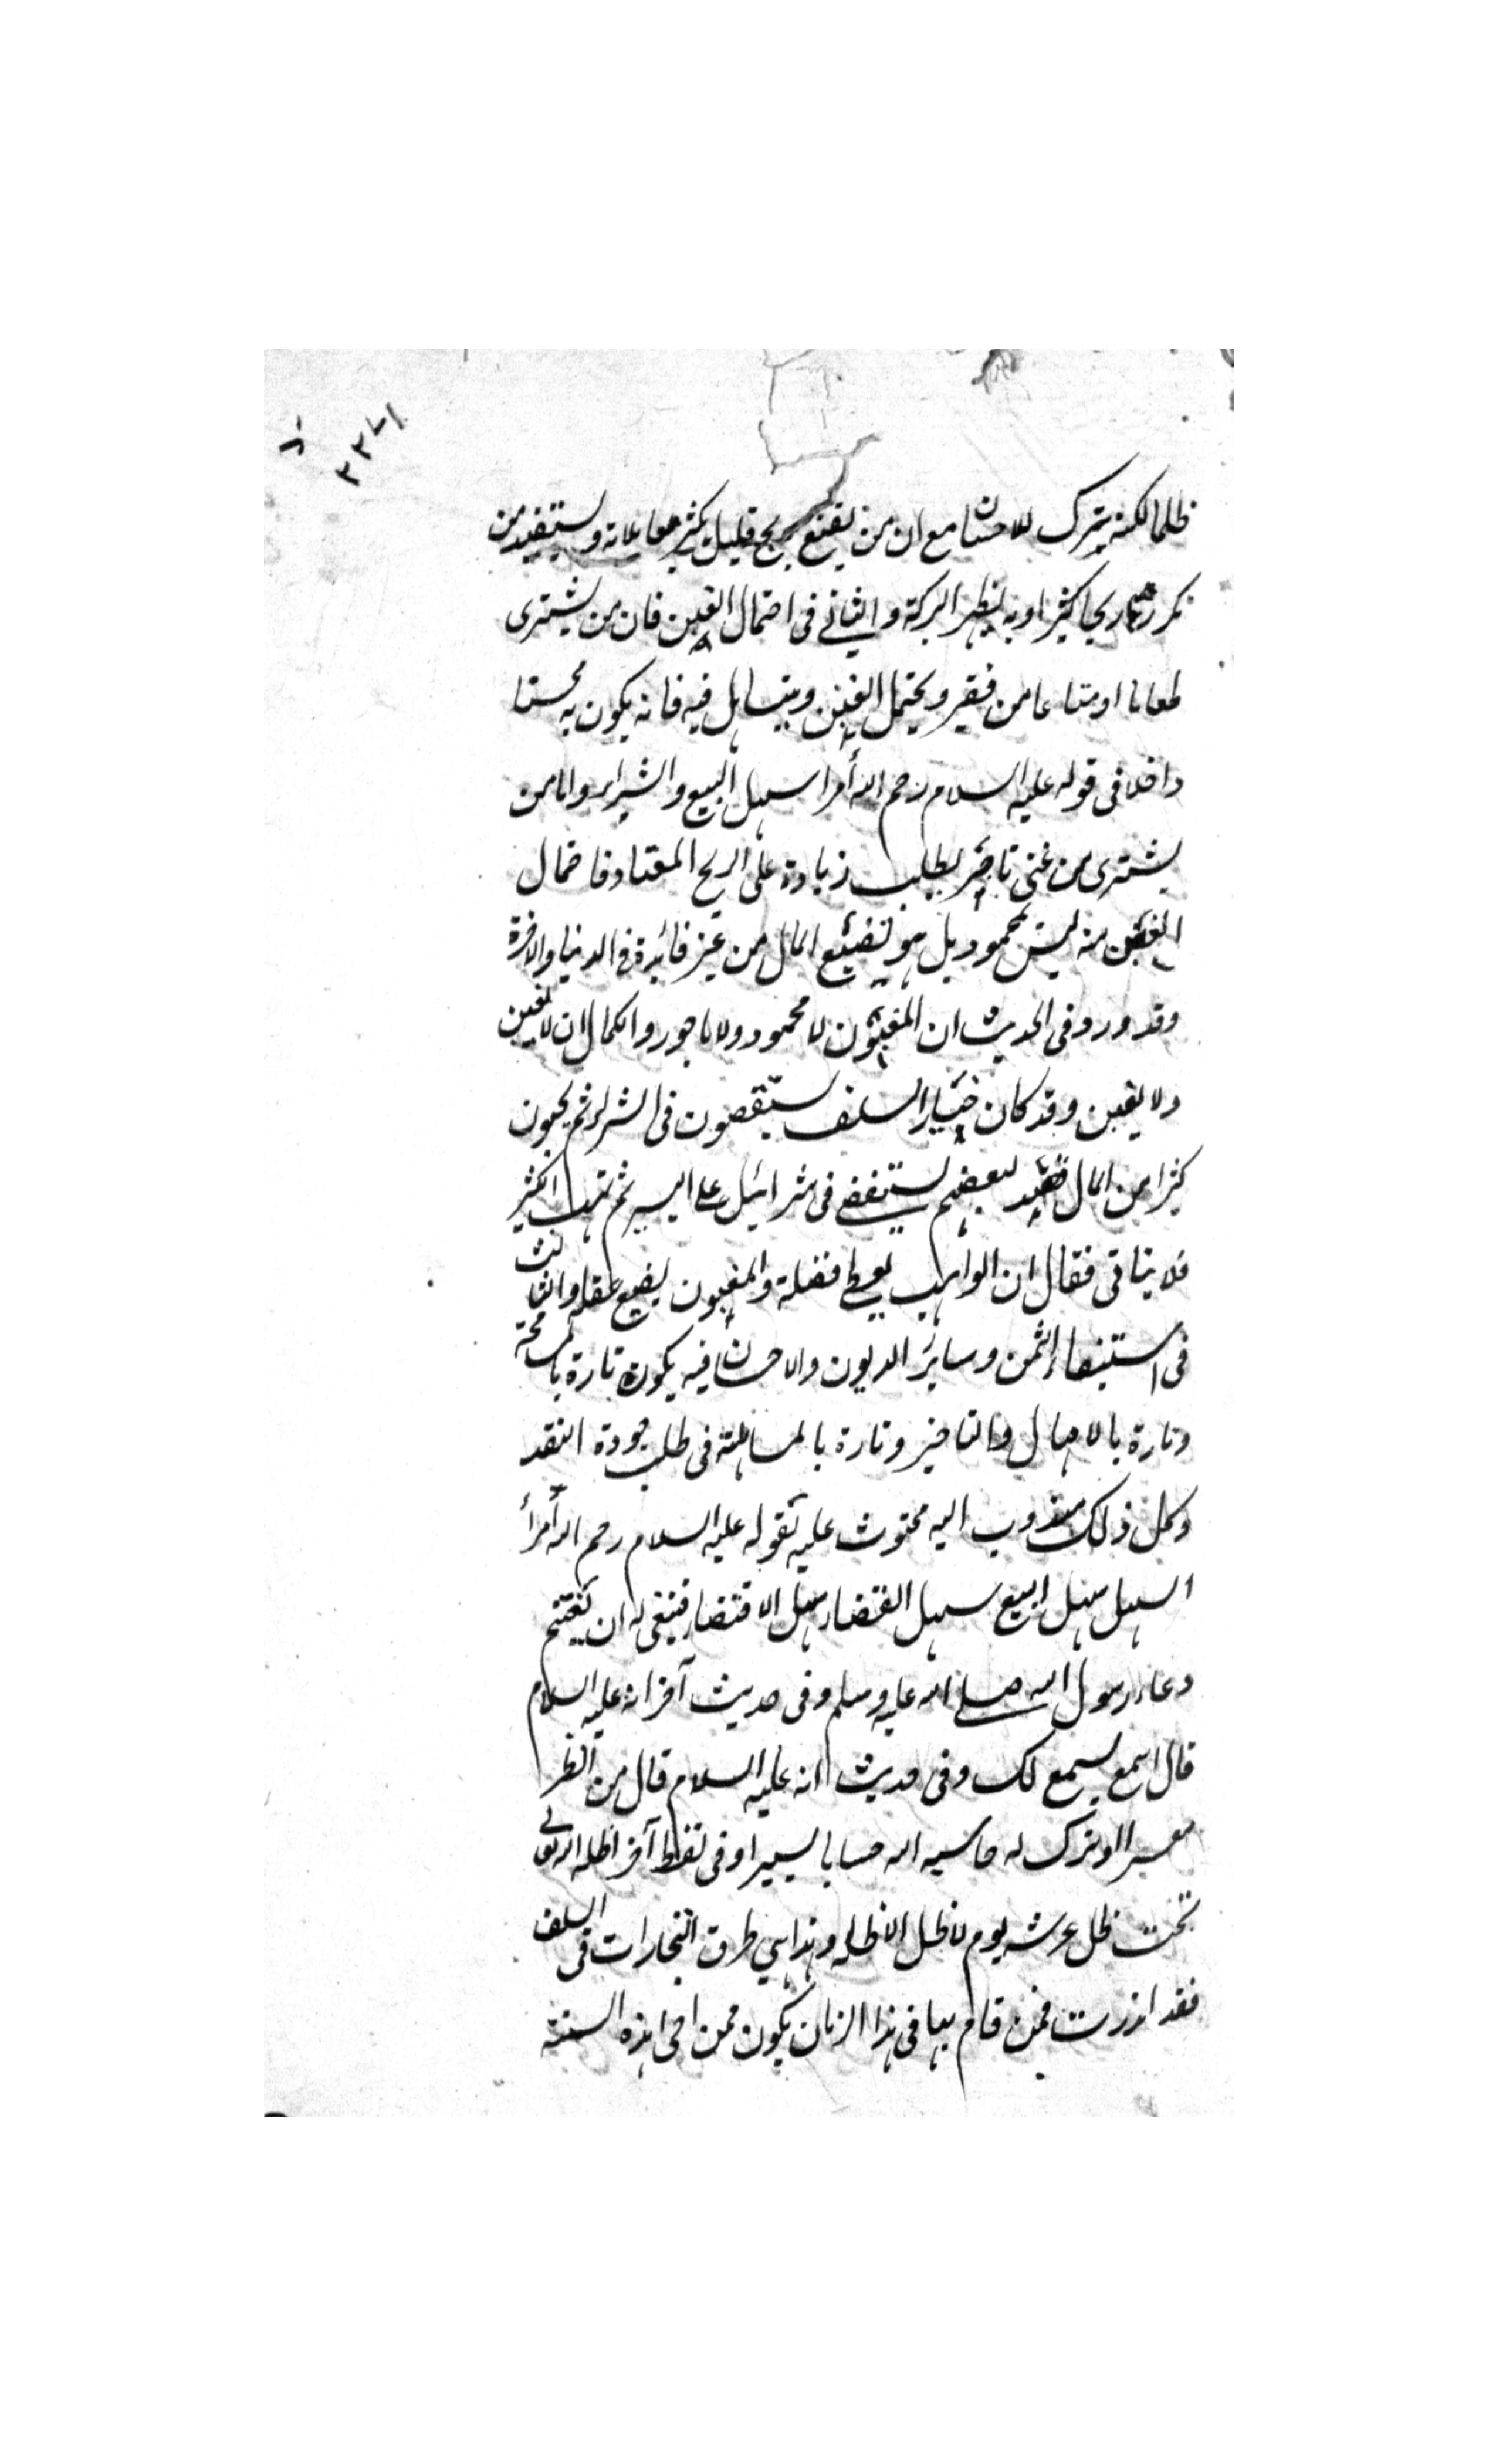 ٢٢٧١
ظلما لكنه يترك للاحسان مع ان من يقنع بربح قليل يكثر معاملاته ويستفيد من
تكررها ربحا كثيرا وبه يظهر البركة والثاني في احتمال الغبن فان من يشترى
طعاما او متاعا من فقير ويحتمل الغبن ويتساهل فيه فانه يكون به محسنا
داخلا في قوله عليه السلام رحم الله أمرا سهل البيع والشراء واما من
يشترى من غنى تاجر يطلب زيادة على الربح المعتاد فاحتمال
الغبن منه ليس بمحمود بل هو تضييع المال من غير فائدة في الدنيا والاخرة
وقد ورد في الحديث ان المغبون لا محمود ولا ماجور والكمال ان لا يغبن
ولا يغبن وقد كان خيار السلف يستقصون في الشراء ثم يهبون
كثيرا من المال فقيل لبعضهم تستقصى في شرائك على اليسير ثم تهب الكثير
فلا تبالى فقال ان الواهب يعطى فضله والمغبون يضيع عقله والثالث
في استيفاء الثمن وسائر الديون والاحسان فيه يكون تارة بالمسامحة
وتارة بالامهال والتاخير وتارة بالمساهلة في طلب جودة النقد
وكل ذلك مندوب اليه محثوث عليه لقوله عليه السلام رحم الله أمرأ
اسهل سهل البيع سهل القضاء سهل الاقتضاء فينبغى له ان يغتنم
دعاء رسول الله صلى الله عليه وسلم وفى حديث آخر انه عليه السلام
قال اسمع يسمع لك وفى حديث انه عليه السلام قال من انظر
معسرا او ترك له حاسبه الله حسابا يسيرا وفى لفظ آخر اظله الله تعالى
تحت ظل عرشه يوم لا ظل الا ظله وهذا هي طرق التجارات في السلف
فقد اندرست فمن قام بها في هذا الزمان يكون ممن احى هذه السنة